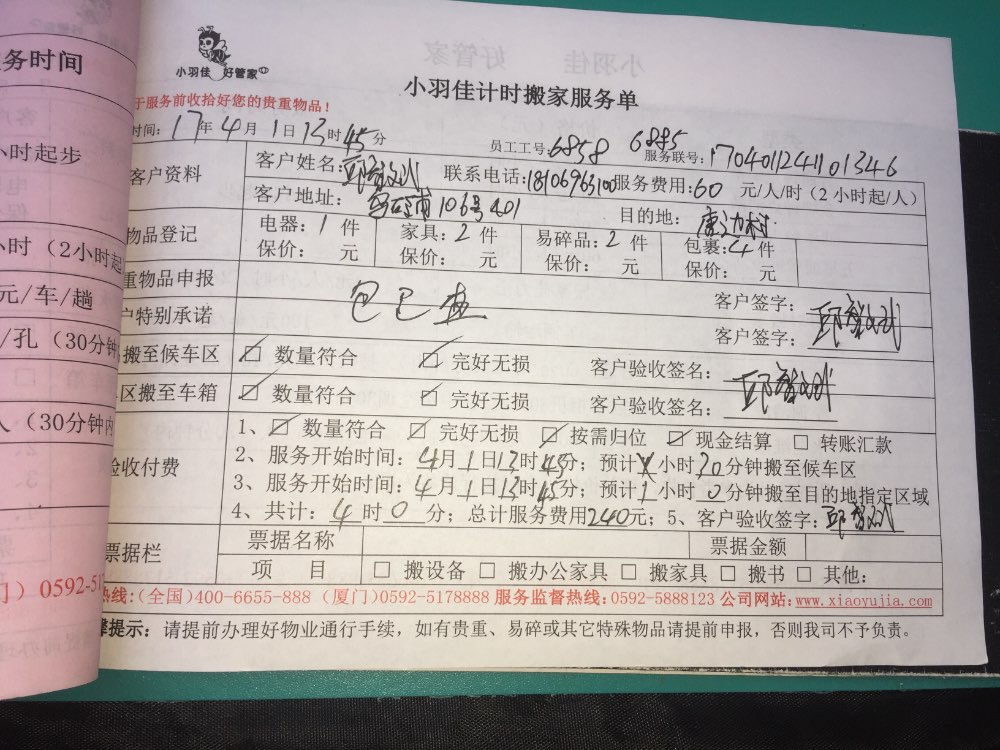 务时间
小时起步
小时（2小时起
元/车/趟
/孔（30分钟
人（30分钟内
门）0592-51
小羽佳 好管家
小羽佳计时搬家服务单
于服务前收拾好您的贵重物品！
时间：17年4月1日13时45分
员工工号：6858 6885
服务联号：1704011241101346
客户资料
客户姓名：
联系电话：18106963100
服务费用：60 元/人/时（2小时起/人）
客户地址： 106号401
目的地：
物品登记
电器：1件 家具：2件 易碎品：2件 包裹：4件
保价： 元 保价： 元 保价： 元 保价： 元
重物品申报
客户签字：
户特别承诺
客户签字：
搬至候车区 ☑ 数量符合 ☑ 完好无损 客户验收签名：
区搬至车箱 ☑ 数量符合 ☑ 完好无损 客户验收签名：
验收付费
1、☑ 数量符合 ☑ 完好无损 ☑ 按需归位 ☑ 现金结算 □ 转账汇款
2、服务开始时间：4月1日13时45分；预计 小时30分钟搬至候车区
3、服务开始时间：4月1日13时45分；预计1小时0分钟搬至目的地指定区域
4、共计：4时0分；总计服务费用240元；5、客户验收签字：
票据栏
票据名称 票据金额
项 目 □ 搬设备 □ 搬办公家具 □ 搬家具 □ 搬书 □ 其他：
热线：（全国）400-6655-888（厦门）0592-5178888 服务监督热线：0592-5888123 公司网站：www.xiaoyujia.com
馨提示：请提前办理好物业通行手续，如有贵重、易碎或其它特殊物品请提前申报，否则我司不予负责。